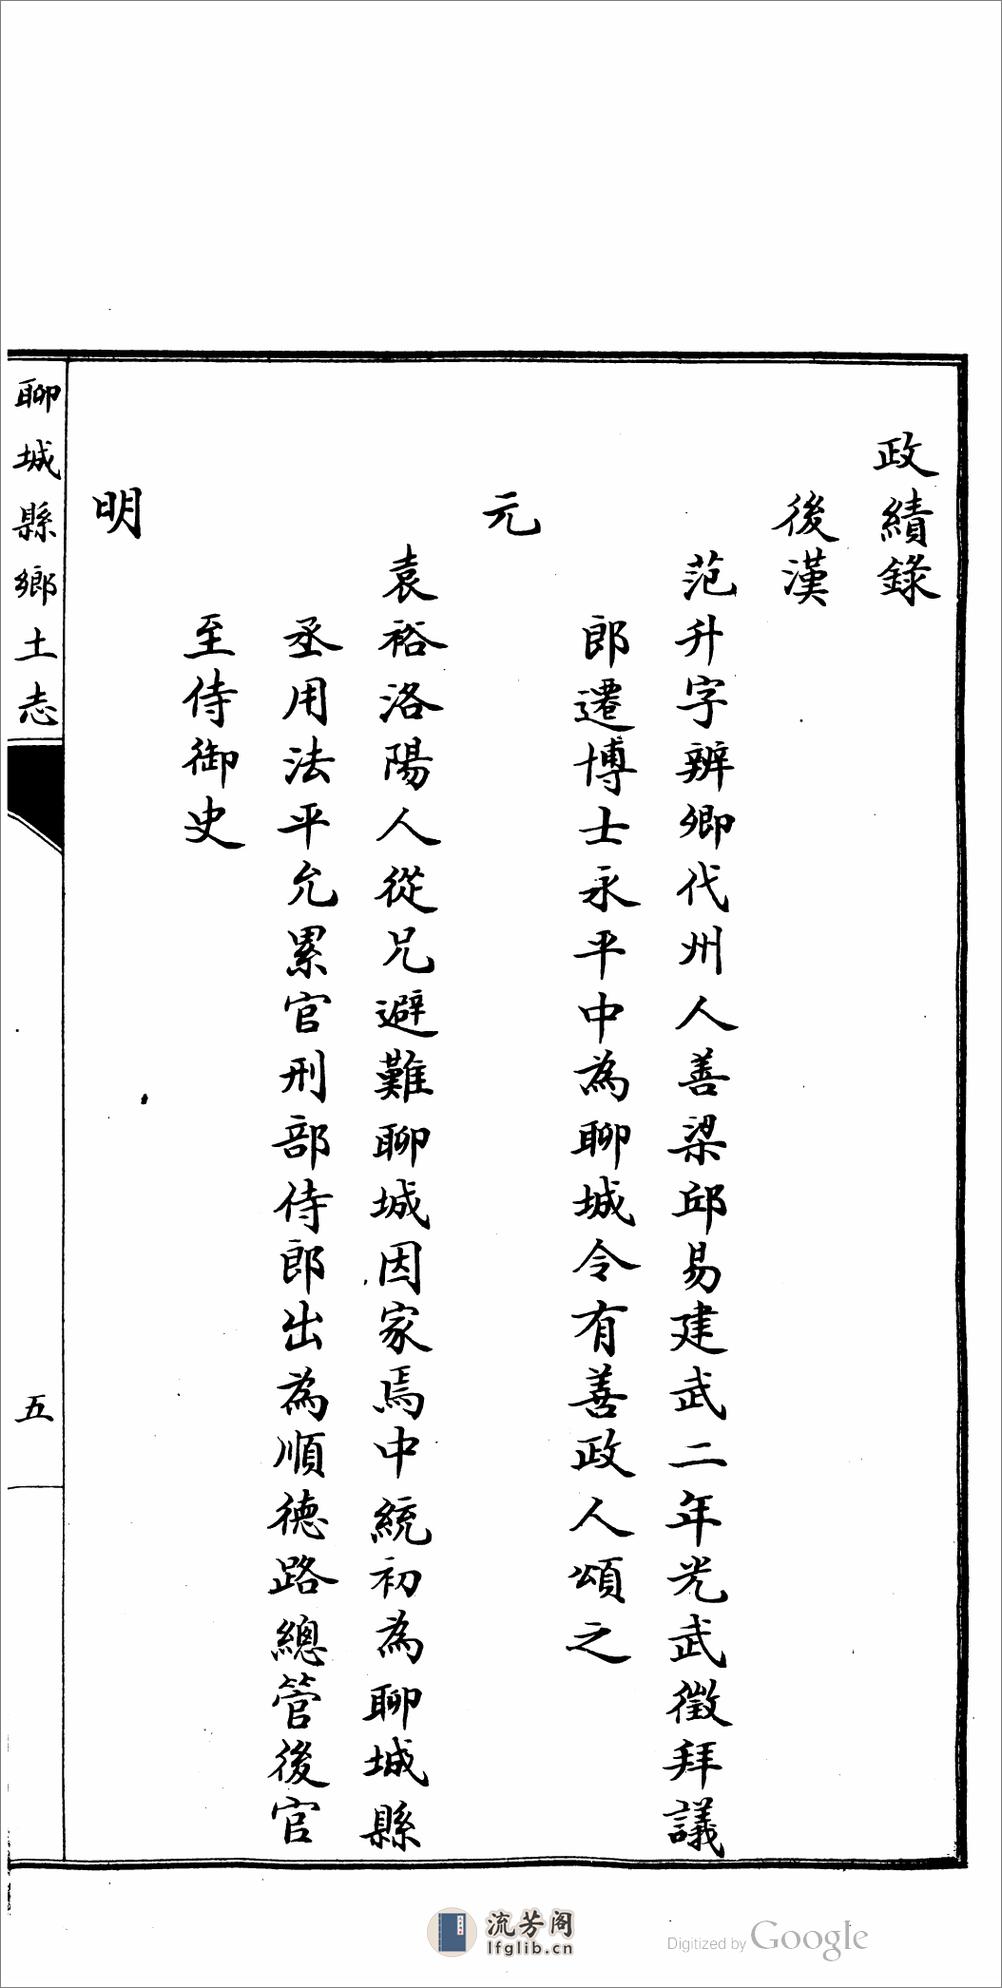 政績錄
後漢
范升字辨卿代州人善梁邱易建武二年光武徵拜議
郎遷博士永平中為聊城令有善政人頌之
元
袁裕洛陽人從兄避難聊城因家焉中統初為聊城縣
丞用法平允累官刑部侍郎出為順德路總管後官
至侍御史
明
聊城縣鄉土志
五
流芳阁
lfglib.cn
Digitized by Google